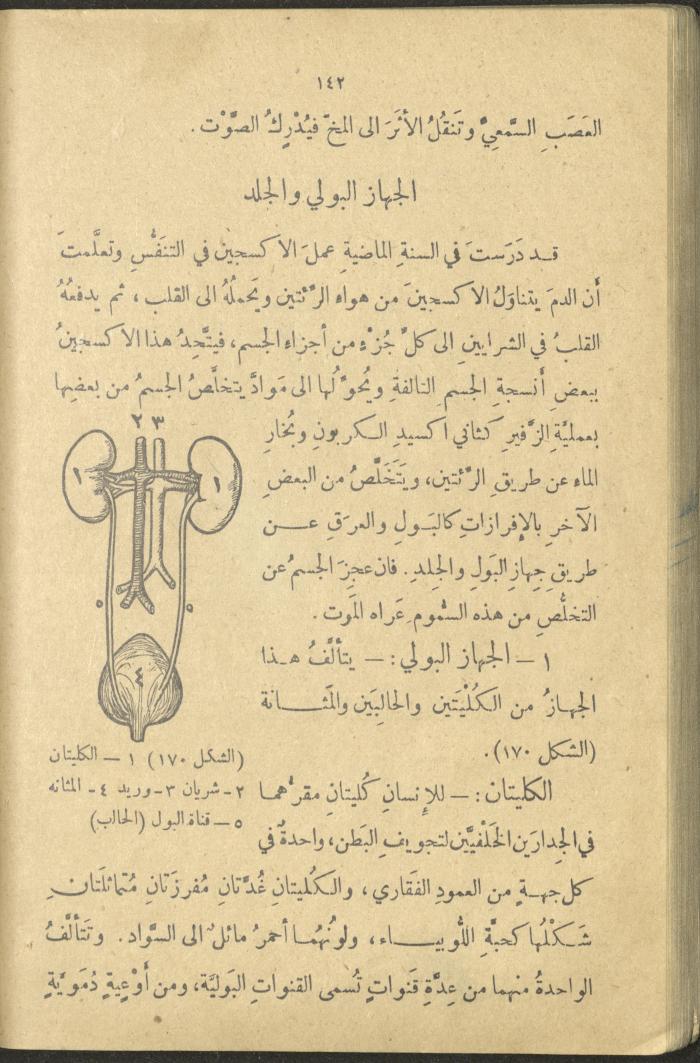 ١٤٢
العَصَبِ السَّمعِيِّ وتَنقُلُ الأثَرَ الى المخّ فيُدْرِكُ الصَّوْت .
الجهاز البولي والجلد
قد دَرَستَ في السنةِ الماضيةِ عملَ الاكسجين في التنَفُّسِ وتعلَّمتَ
أن الدمَ يتناوَلُ الاكسجينَ من هواءِ الرِّئتين ويَحملُهُ الى القلب ، ثم يدفعُهُ
القلبُ في الشرايينِ الى كلِّ جُزْءٍ من أجزاءِ الجسم، فيتَّحِدُ هذا الاكسجينُ
ببعضِ أنسجةِ الجسم التالفةِ ويُحوِّلُها الى مَوادَّ يتخلَّصُ الجسمُ من بعضِها
بعمليَّةِ الزَّفيرِ كثاني اكسيدِ الكربونِ وبُخارِ
الماءِ عن طريقِ الرِّئتين، ويَتَخَلَّصُ من البعضِ
الآخرِ بالإفرازاتِ كالبَولِ والعرَقِ عن
طريقِ جِهازِ البَولِ والجِلدِ . فان عجِزَ الجسمُ عن
التخلُّصِ من هذه السُّمومِ عَراه المَوت .
٢ ٣
١ ١
٥ ٥
٤
١ – الجهاز البولي : – يتألَّفُ هذا
الجهازُ من الكُلْيَتَين والحالِبَين والمَثانة
(الشكل ١٧٠) .
(الشكل ١٧٠) ١ – الكليتان
٢- شريان ٣- وريد ٤- المثانه
٥ – قناة البول (الحالب)
الكليتان : – للإنسانِ كُليتانِ مقرُّهما
في الجِدارَين الخَلْفيَّين لتجويفِ البَطن، واحدةٌ في
كل جهةٍ من العمودِ الفَقاري ، والكُليتانِ غُدَّتانِ مُفرزَتانِ مُتماثلَتانِ
شَكلُها كحبَّةِ اللُّوبياء ، ولونُهُما أحمرُ مائلٌ الى السَّواد . وتَتألَّفُ
الواحدةُ منهما من عِدَّةِ قَنواتٍ تُسمى القنواتِ البَوليَّة، ومن أوْعِيةٍ دُمَويَّةٍ